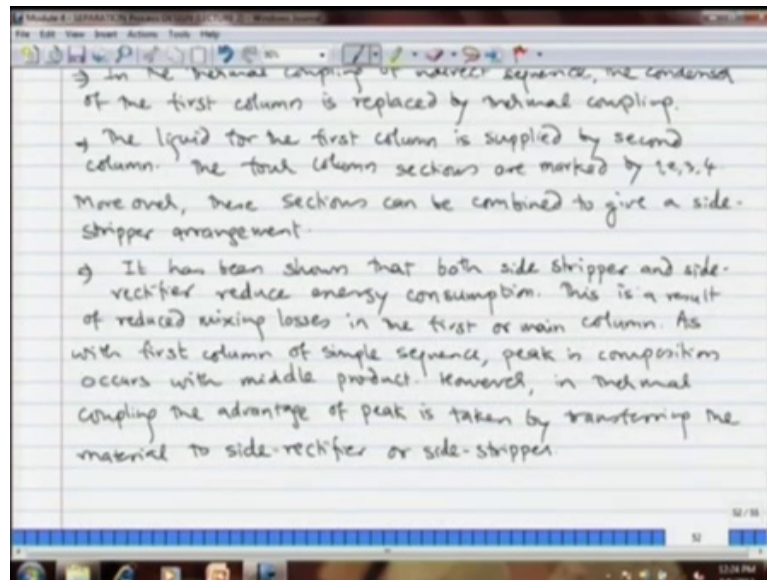 Module 4 - SEPARATION Process DESIGN (LECTURE 2) - Windows Journal
File Edit View Insert Actions Tools Help
→ In the thermal coupling of indirect sequence, the condenser
of the first column is replaced by thermal coupling.
→ The liquid for the first column is supplied by second
column. The four column sections are marked by 1,2,3,4.
More over, these sections can be combined to give a side-
stripper arrangement.
→ It has been shown that both side stripper and side-
rectifier reduce energy consumption. This is a result
of reduced mixing losses in the first or main column. As
with first column of simple sequence, peak in composition
occurs with middle product. However, in thermal
coupling the advantage of peak is taken by transferring the
material to side-rectifier or side-stripper.
52 / 55
52
12:24 PM